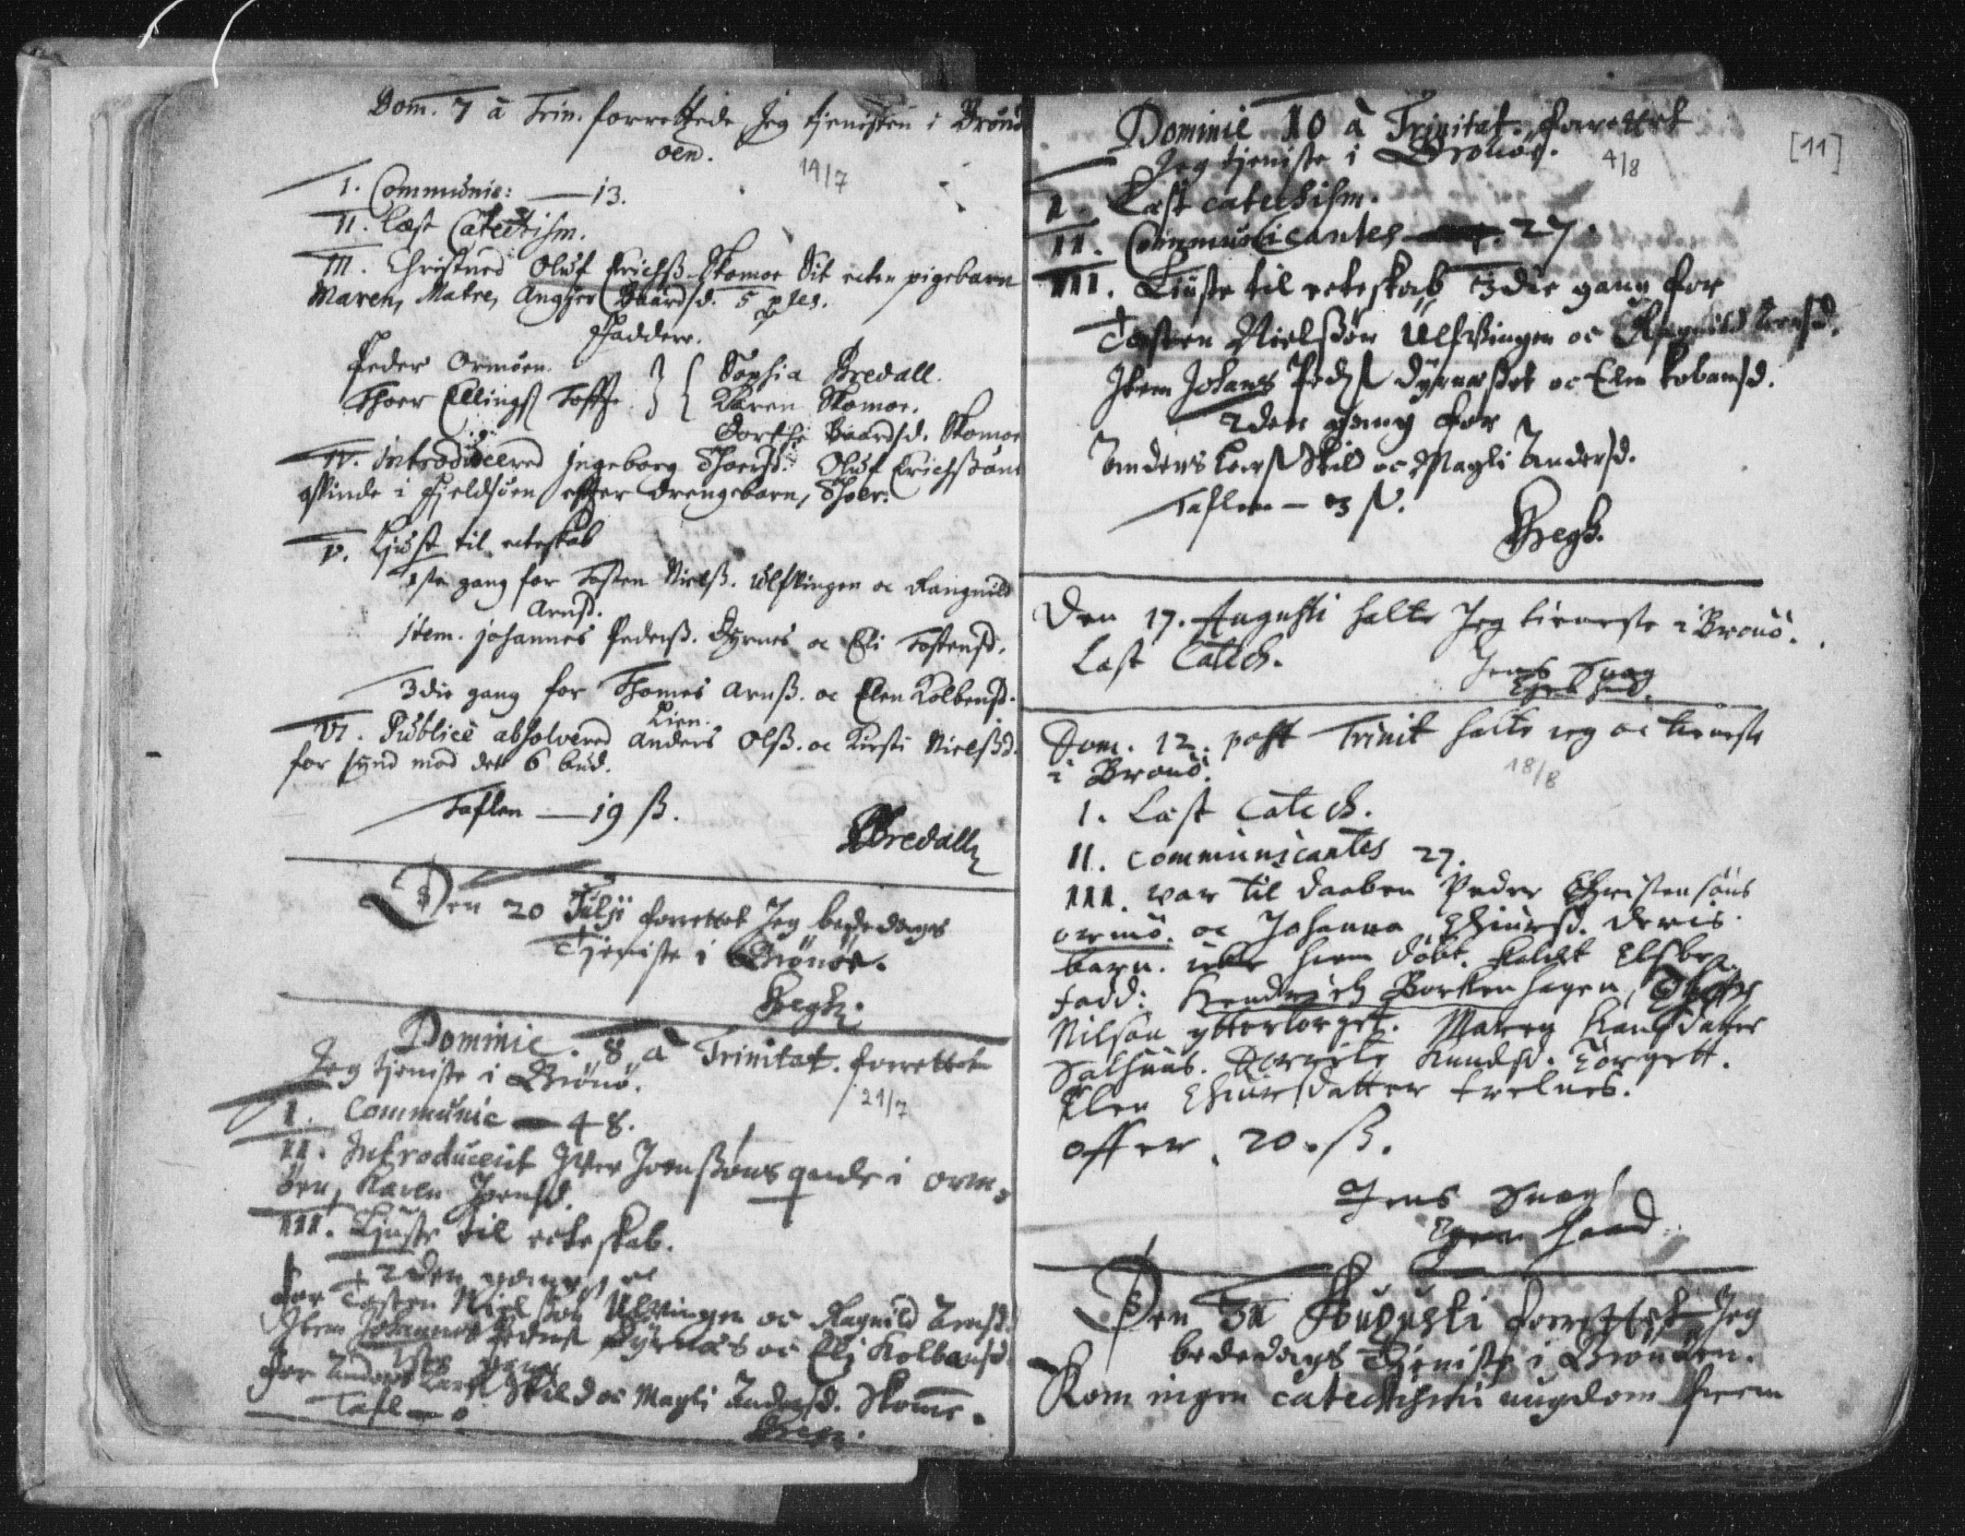 Dom. 7 à Trin. forrettede Jeg tjenisten i Brönö
oen.
14/7
I. Communic: — 13.
II. læst Catechism.
III. Christned Oluf Erichsß Skomoe Sit ecten pigebarn
Maren, Matre, Angjer Baardsd. 5
Faddere.
Peder Ormöen. Sophia Bredall.
Thoer Ellingsß Toffte Karen Skomoe.
Dorthe Baardsd. Skomoe
IV. introducered Jngeborg Thoersd. Oluf Erichsßöns
qvinde i Fjeldsöen effter drengebarn, Thoer.
V. Liust til ecteskab
1ste gang for Tosten Nielsß. Ulfvingen oc Rangnild
Arnsd.
item. johannes Pedersß. Dyrnes oc Eli Tostensd.
3die gang for Thomes Arnsß. oc Elen Kolbensd.
VI. Publicè absolvered Anders Olsß. oc Kirsti Nielsßd.
Lien.
for synd mod det 6 bud.
Taflen — 19 ß.
Bredall
Den 20 Julji forrettet Jeg bededags
Tjeniste i Brönöe.
Dominic. 8 à Trinitat. forrettet
Jeg tjeniste i Brönö.
21/7
I. Communic — 48.
II. Introducerit Iver Joensßöns qvinde i Orm=
öen, Karen Joensd.
III. Liuste til ecteskab.
2den gang
for Tosten Nielsßön Ulvingen oc Ragnild Arnsd.
Item Johannes Pedersß Dyrnæs oc Eli Kolbansd.
1ste gang
for Anders Larsß Skild oc Magli Andersd. Skomoe.
Tafl — 0
Dominic 10 à Trinitat. forrettet
Jeg tjeniste i Brönöe.
4/8
[11]
I. Læst catechism.
II. Communicantes 27.
III. Liuste til ecteskab 3die gang for
Tosten Nielsßön Ulfvingen oc Ragnild Arnsd.
Item Johans Pedsß Dyrnæsset oc Elen kobansd.
2den gang for
Anders Larsß Skild oc Magli Andersd.
Taflen — 3 ß.
Den 17. Augusti holte Jeg tieneste i Brönö.
Læst Catech.
Jens Snog
Egen hand.
Dom. 12. post Trinit holte ieg oc tieneste
i Brönö.
18/8
I. Læst Catech.
II. Communicantes 27.
III. var til daaben Peder Christensöns
ormö. oc Johanna Ehiursd. deris
barn. hiem döbt. kaldet Elsbe
fadd: Hendrich Borkenhagen,
Nilsøn yttertorget. Maren Hansdatter
Salhuus. Knudsd. Torgett.
Elen Ehiursdatter trelnes.
offer. 20. ß.
Jens Snog
Egen haand.
Den 31 Augusti forrettet Jeg
bededags Tjeniste i Brönöen.
Kom ingen catechismi ungdom frem